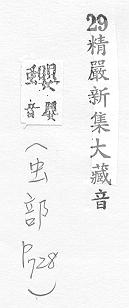 29精嚴新集大藏音
蠳
音嬰
（虫部P.728）